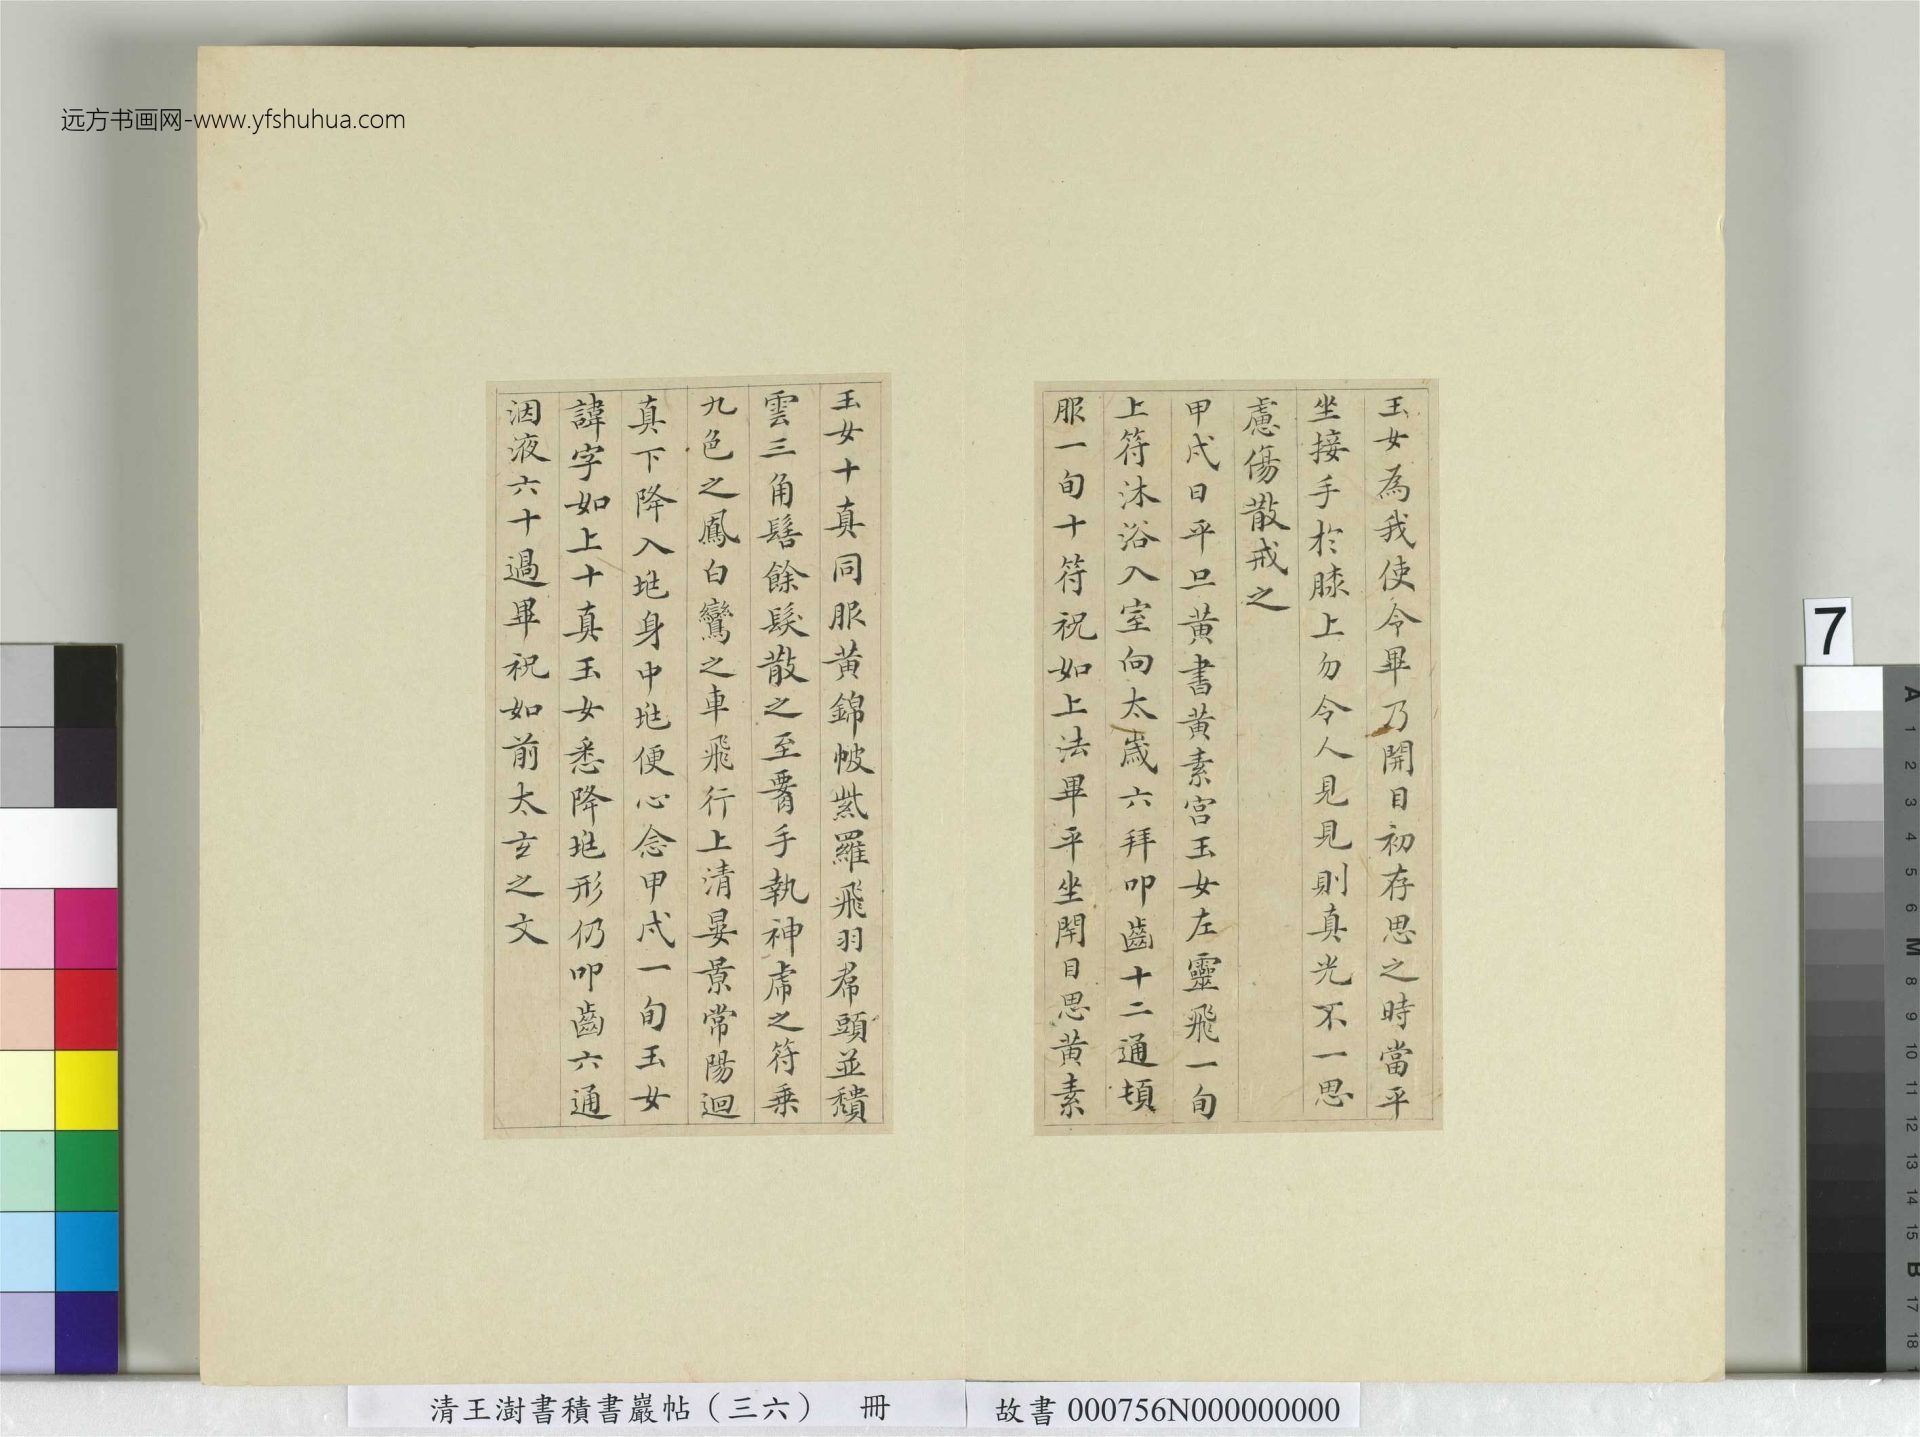 远方书画网-www.yfshuhua.com
玉女為我使令畢乃開目初存思之時當平
坐接手於膝上勿令人見見則真光不一思
慮傷散戒之
甲戌日平旦黃書黃素宮玉女左靈飛一旬
上符沐浴入室向太歲六拜叩齒十二通頓
服一旬十符祝如上法畢平坐閇目思黃素
玉女十真同服黃錦帔紫羅飛羽帬頭並穨
雲三角髻餘髮散之至腰手執神虎之符乗
九色之鳳白鸞之車飛行上清晏景常陽迴
真下降入兆身中兆便心念甲戌一旬玉女
諱字如上十真玉女悉降兆形仍叩齒六通
洇液六十過畢祝如前太玄之文
7
A
1
2
3
4
5
6
M
8
9
10
11
12
13
14
15
B
17
18
清王澍書積書巖帖（三六） 冊
故書 000756N000000000